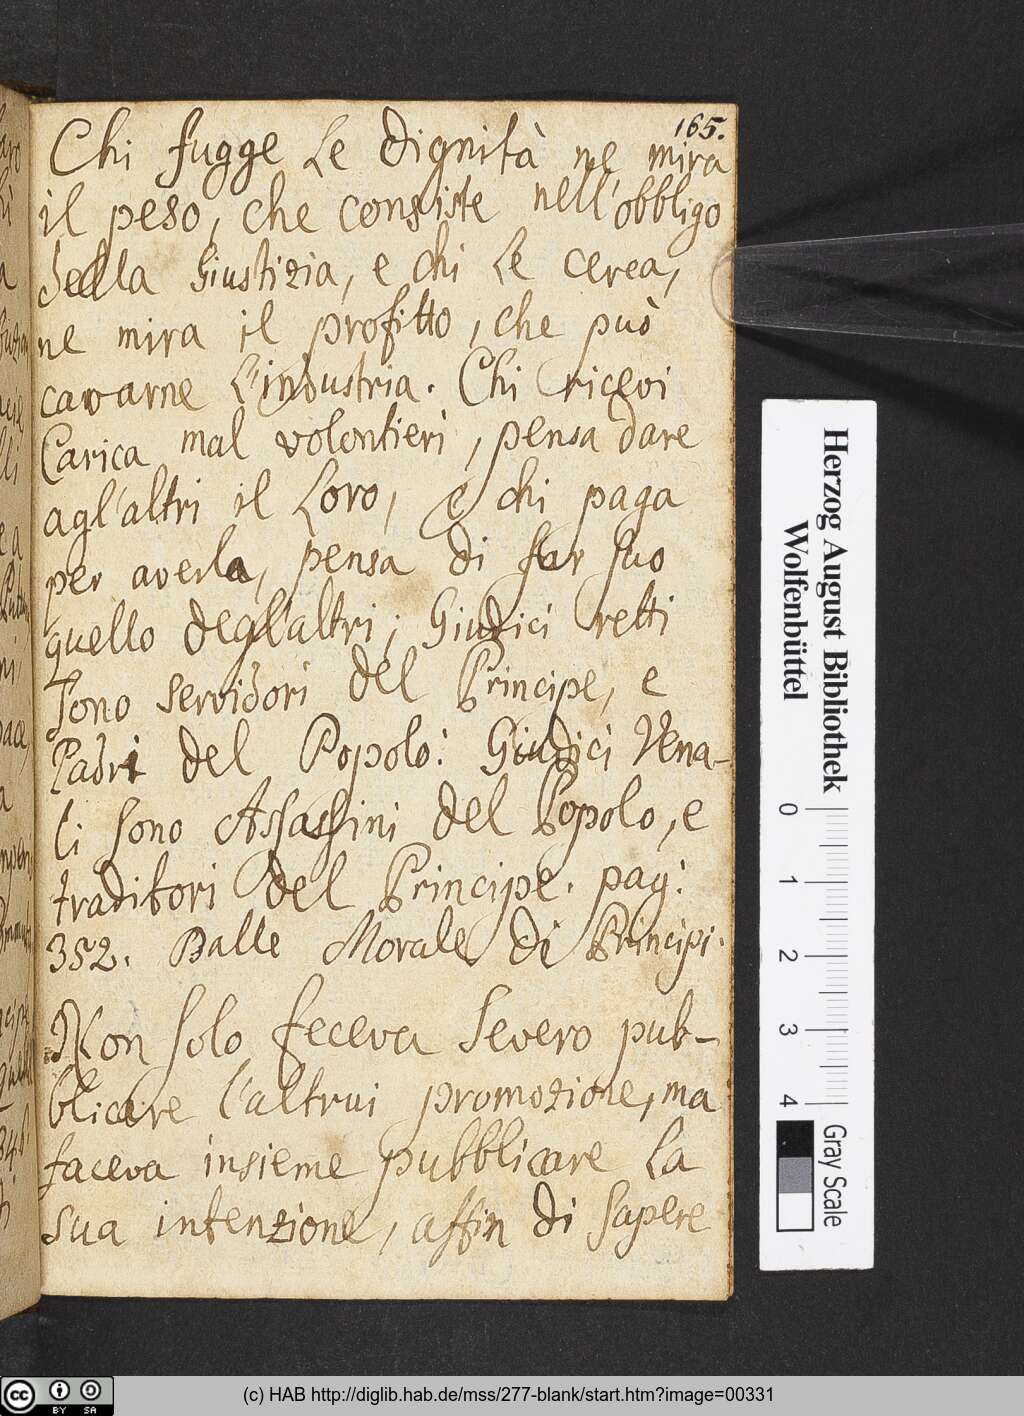 165.
Chi fugge le dignità ne mira
il peso, che consiste nell'obbligo
della Giustizia, e chi le cerca,
ne mira il profitto, che può
cavarne l'industria. Chi ricevi
Carica mal volontieri, pensa dare
agl'altri il Loro, e chi paga
per averla, pensa di far suo
quello degl'altri; Giudici retti
sono servidori del Principe, e
Padri del Popolo: Giudici Vena-
li sono Assassini del Popolo, e
traditori del Principe. pag:
352. Dalle Morale di Principi.
Non solo feceva Severo pub-
blicare l'altrui promozione, ma
faceva insieme pubblicare la
sua intenzione, affin di sapere
Herzog August Bibliothek
Wolfenbüttel
0 1 2 3 4
Gray Scale
(c) HAB http://diglib.hab.de/mss/277-blank/start.htm?image=00331
cc BY SA